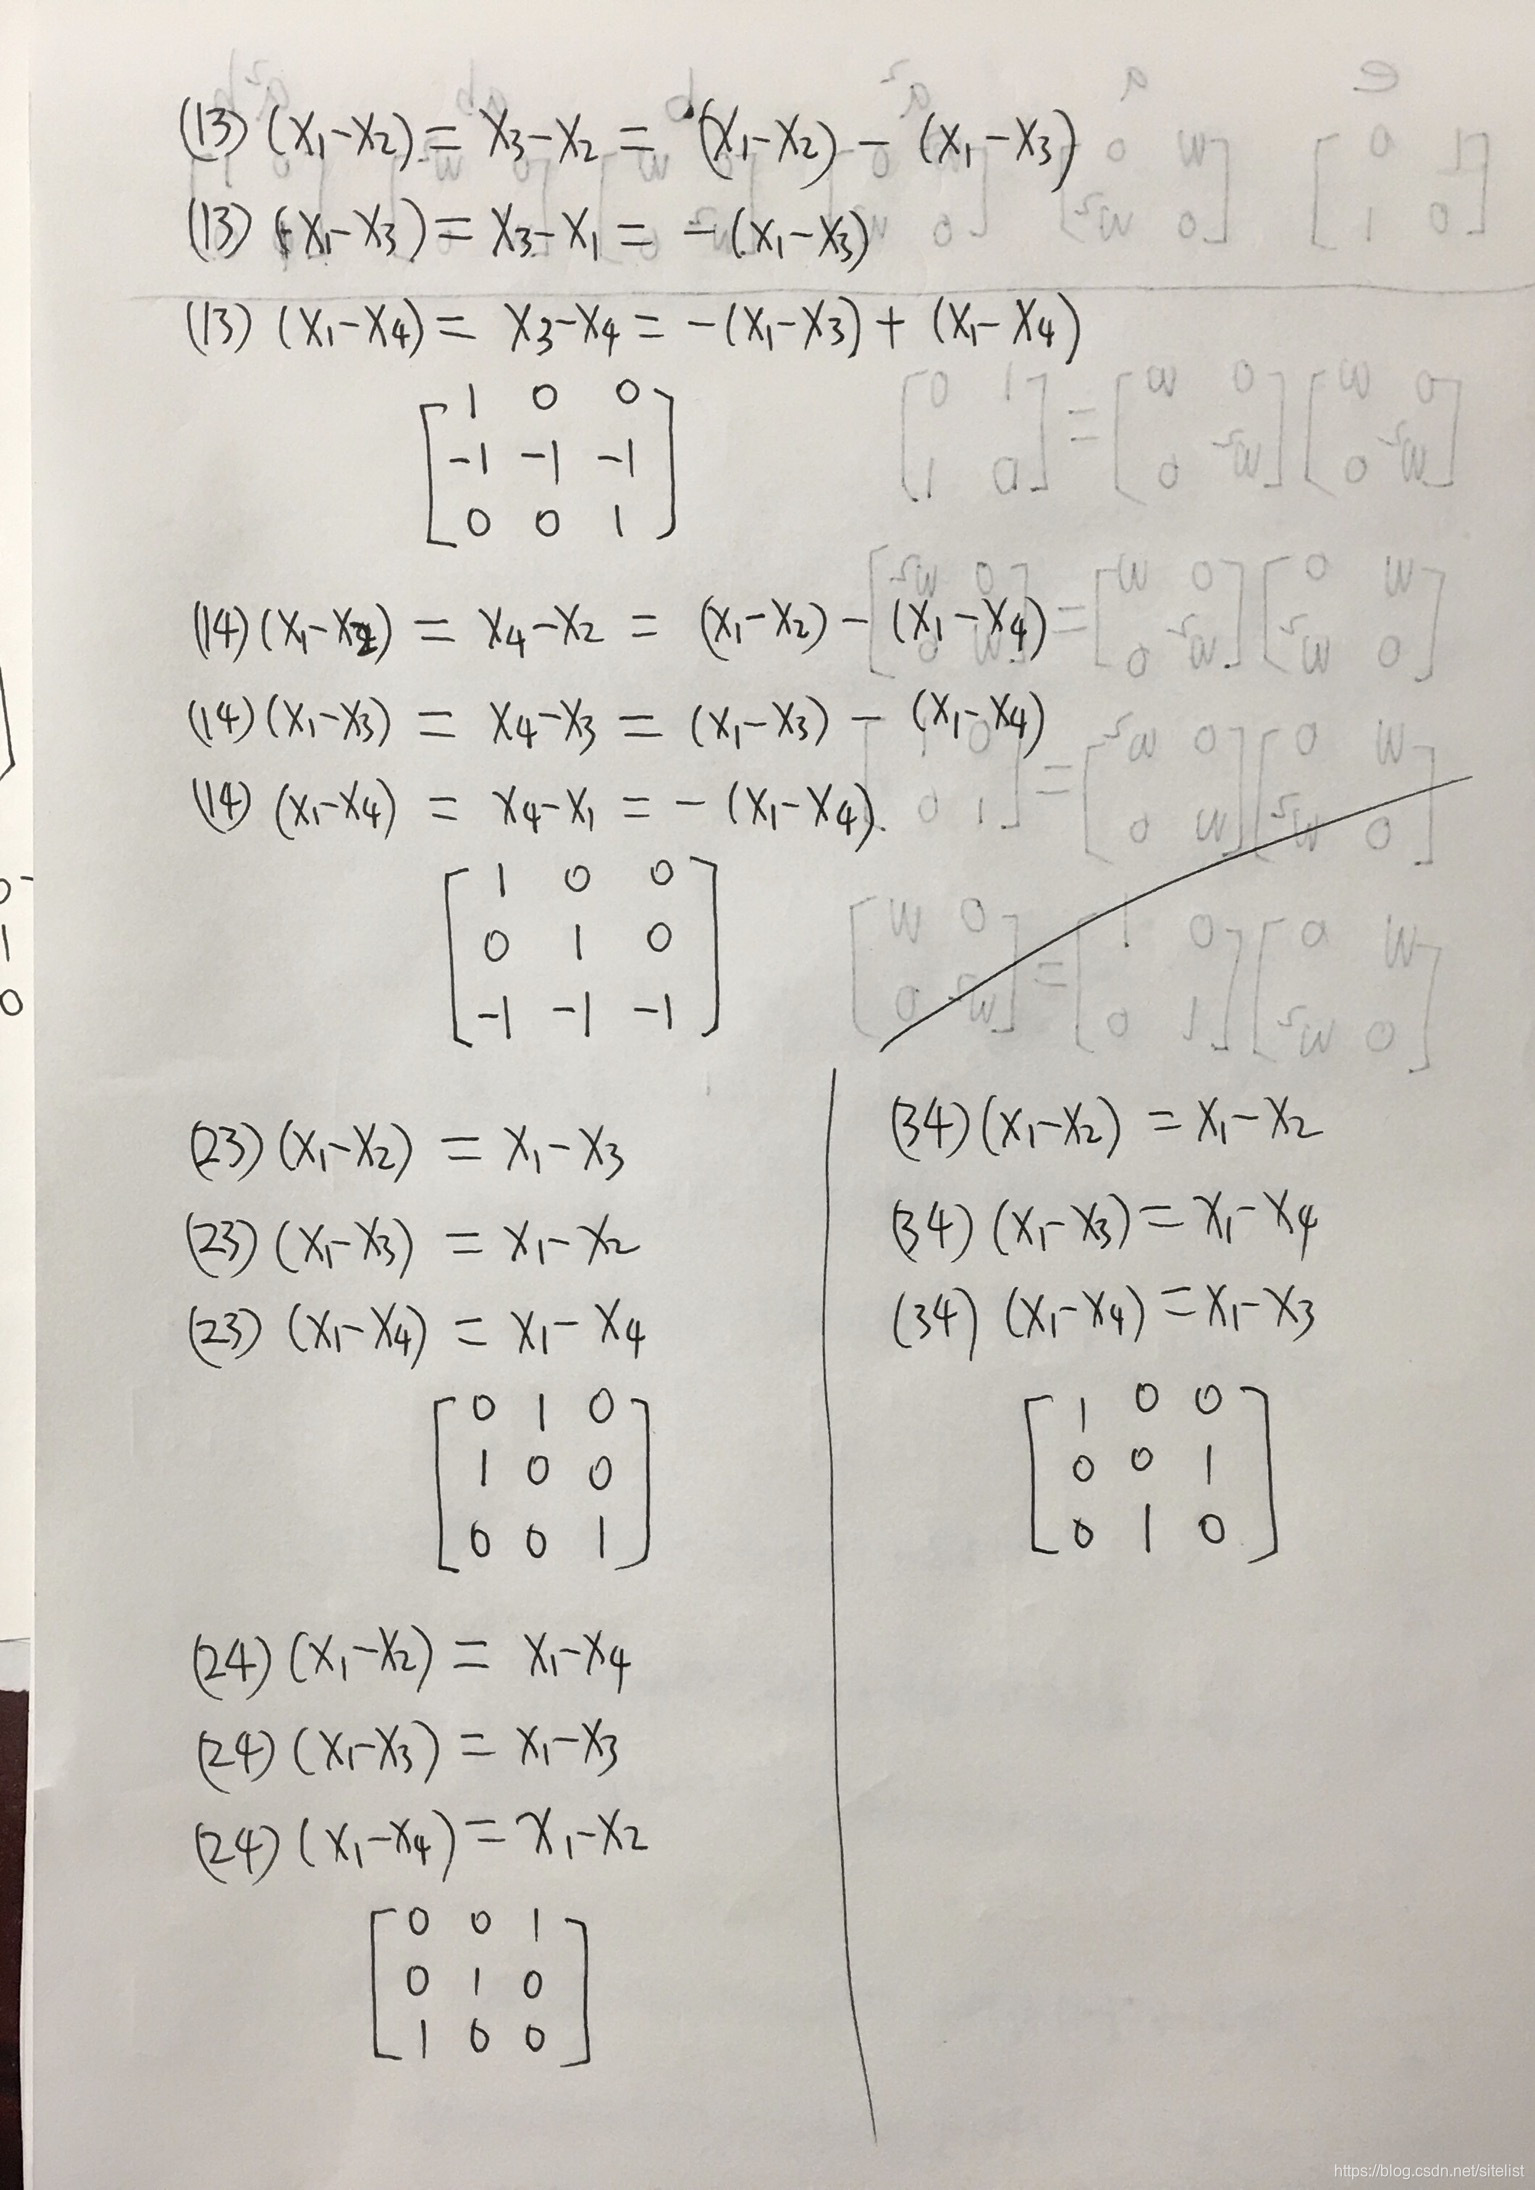 (13) (x₁-x₂) = x₃-x₂ = (x₁-x₂) - (x₁-x₃)
(13) (x₁-x₃) = x₃-x₁ = -(x₁-x₃)
(13) (x₁-x₄) = x₃-x₄ = -(x₁-x₃) + (x₁-x₄)
1 0 0
-1 -1 -1
0 0 1
(14) (x₁-x₂) = x₄-x₂ = (x₁-x₂) - (x₁-x₄)
(14) (x₁-x₃) = x₄-x₃ = (x₁-x₃) - (x₁-x₄)
(14) (x₁-x₄) = x₄-x₁ = -(x₁-x₄)
1 0 0
0 1 0
-1 -1 -1
(23) (x₁-x₂) = x₁-x₃
(23) (x₁-x₃) = x₁-x₂
(23) (x₁-x₄) = x₁-x₄
0 1 0
1 0 0
0 0 1
(24) (x₁-x₂) = x₁-x₄
(24) (x₁-x₃) = x₁-x₃
(24) (x₁-x₄) = x₁-x₂
0 0 1
0 1 0
1 0 0
(34) (x₁-x₂) = x₁-x₂
(34) (x₁-x₃) = x₁-x₄
(34) (x₁-x₄) = x₁-x₃
1 0 0
0 0 1
0 1 0
0
1
0
https://blog.csdn.net/sitelist